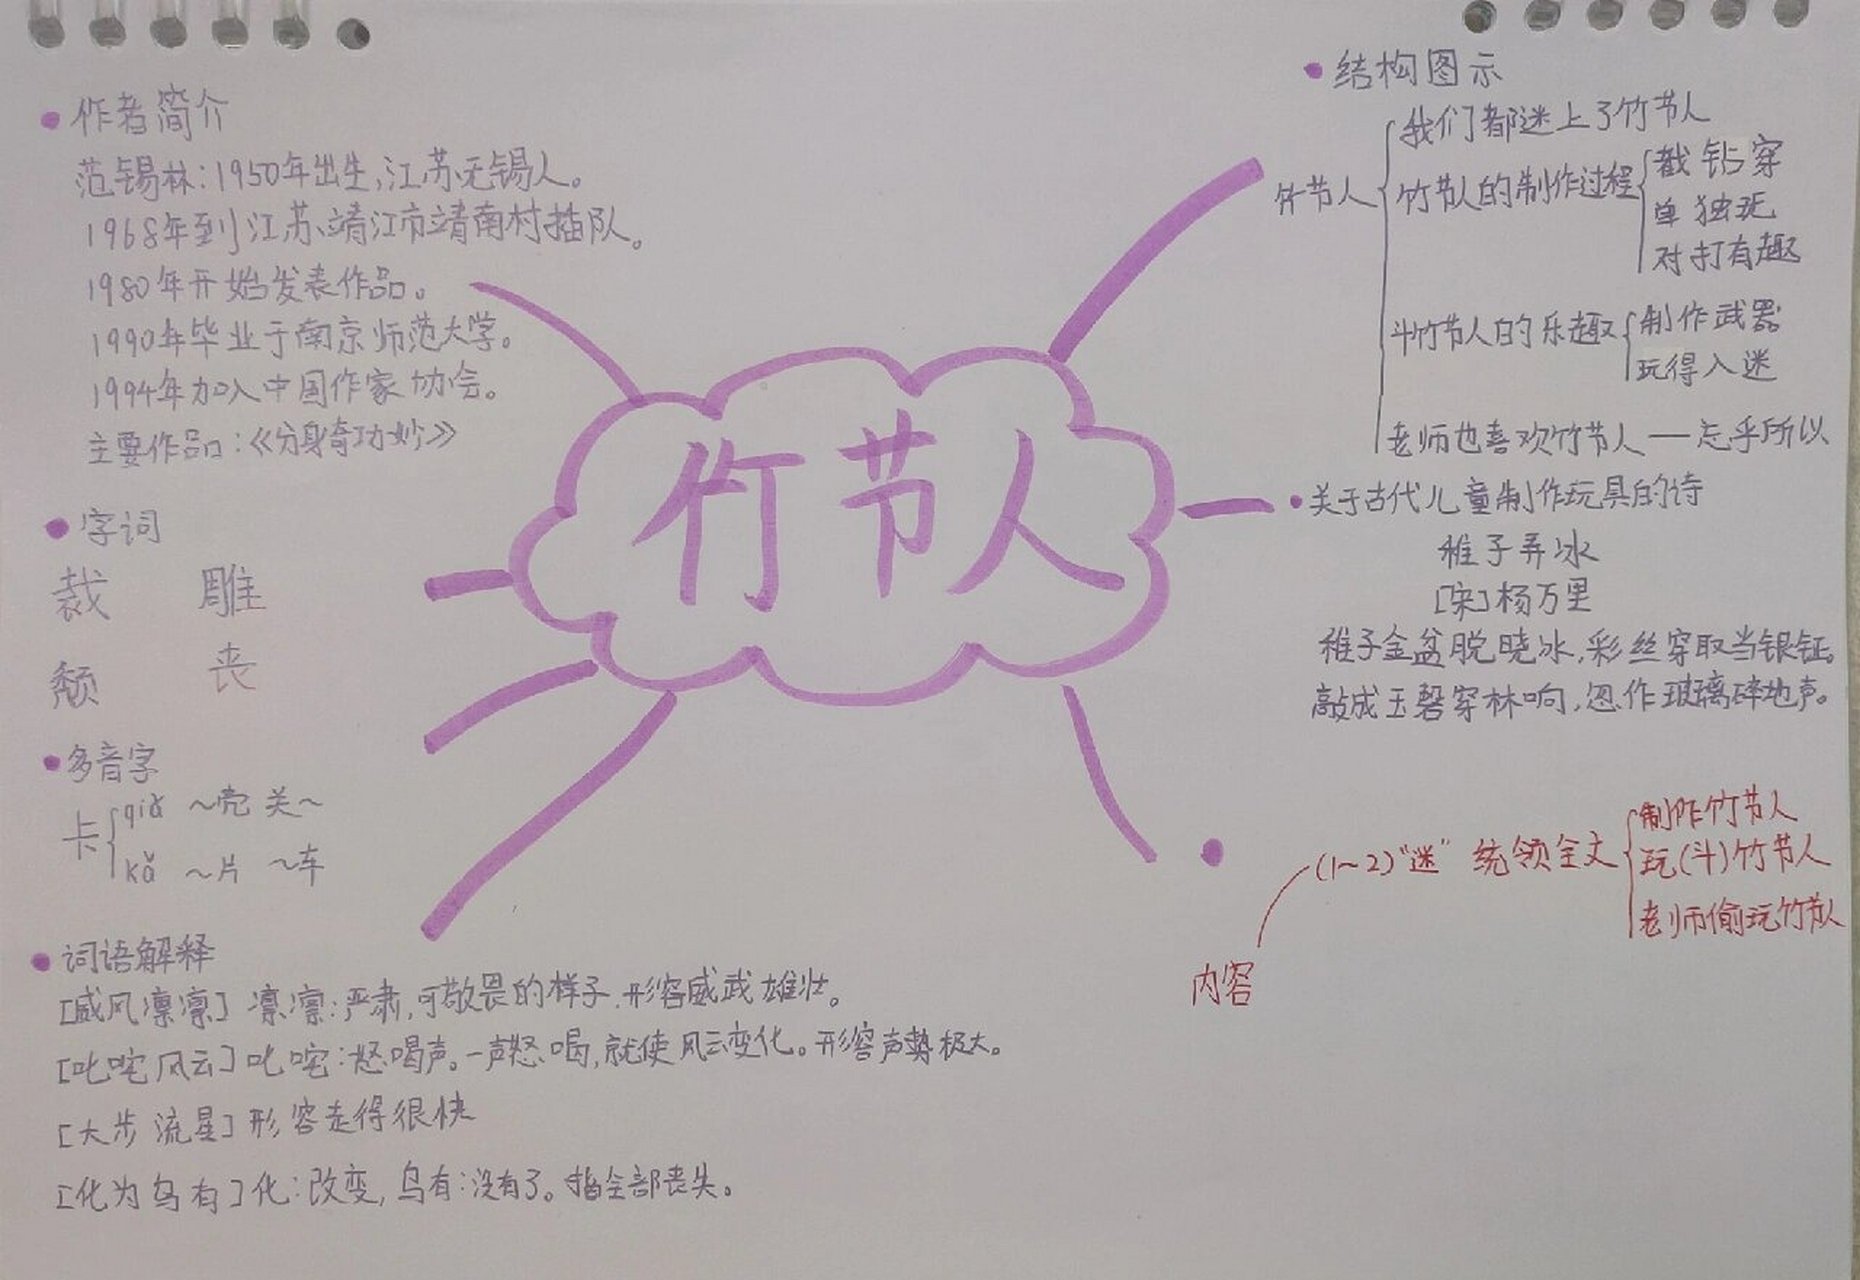 竹节人
作者简介
范锡林：1950年出生，江苏无锡人。
1968年到江苏靖江市靖南村插队。
1980年开始发表作品。
1990年毕业于南京师范大学。
1994年加入中国作家协会。
主要作品：《分身奇功妙》
字词
裁 雕
颓 丧
多音字
卡
qiǎ ～壳 关～
kǎ ～片 ～车
词语解释
[威风凛凛] 凛凛：严肃，可敬畏的样子.形容威武雄壮。
[叱咤风云] 叱咤：怒喝声。一声怒喝，就使风云变化。形容声势极大。
[大步流星] 形容走得很快
[化为乌有] 化：改变，乌有：没有了。指全部丧失。
结构图示
竹节人
我们都迷上了竹节人
竹节人的制作过程
截 钻 穿
单独玩
对打有趣
斗竹节人的乐趣
制作武器
玩得入迷
老师也喜欢竹节人——忘乎所以
关于古代儿童制作玩具的诗
稚子弄冰
[宋]杨万里
稚子金盆脱晓冰，彩丝穿取当银钲。
敲成玉磬穿林响，忽作玻璃碎地声。
内容
(1～2)“迷” 统领全文
制作竹节人
玩(斗)竹节人
老师偷玩竹节人